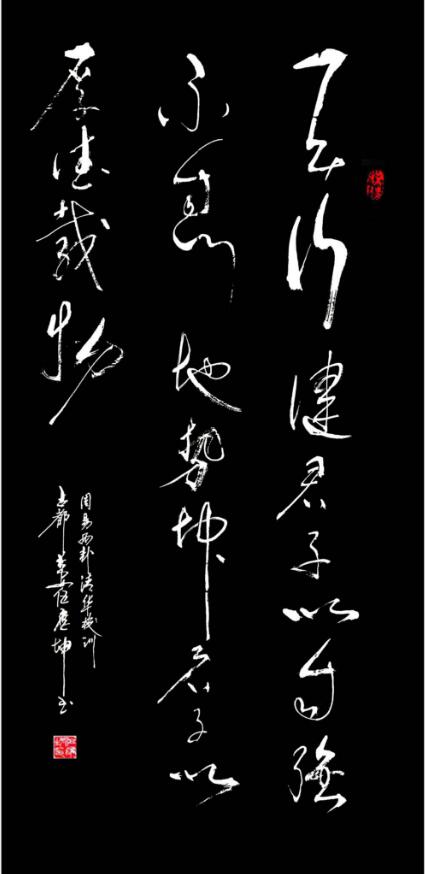 天行健君子以自强
不息地势坤君子以
厚德载物
周易两卦清华校训
古都 坤书